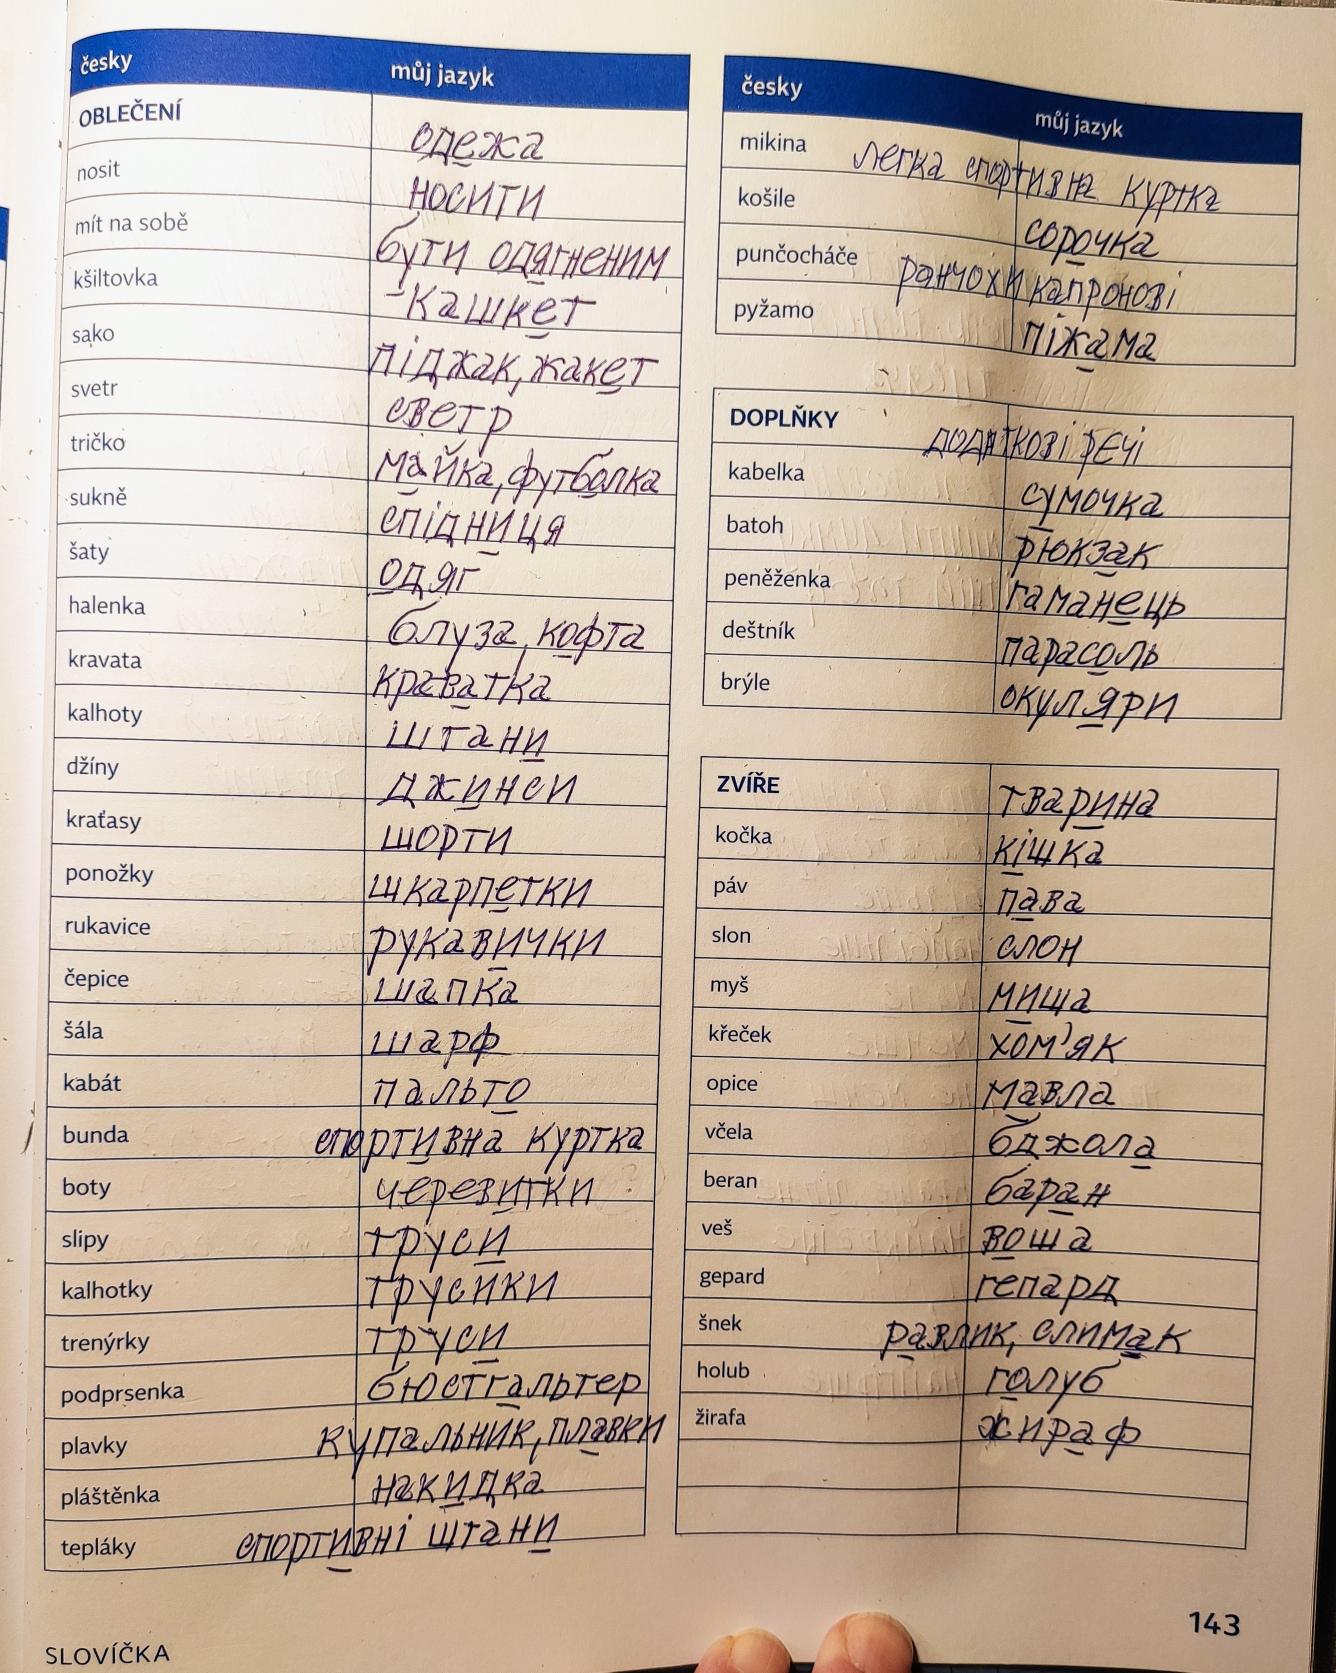 česky můj jazyk
OBLEČENÍ одежа
nosit носити
mít na sobě бути одягненим
kšiltovka кашкет
sako піджак, жакет
svetr светр
tričko майка, футболка
sukně спідниця
šaty одяг
halenka блуза, кофта
kravata краватка
kalhoty штани
džíny джинси
kraťasy шорти
ponožky шкарпетки
rukavice рукавички
čepice шапка
šála шарф
kabát пальто
bunda спортивна куртка
boty черевитки
slipy труси
kalhotky трусики
trenýrky труси
podprsenka бюстгальтер
plavky купальник, плавки
pláštěnka накидка
tepláky спортивні штани
česky můj jazyk
mikina легка спортивна куртка
košile сорочка
punčocháče панчохи капронові
pyžamo піжама
DOPLŇKY додаткові речі
kabelka сумочка
batoh рюкзак
peněženka гаманець
deštník парасоль
brýle окуляри
ZVÍŘE тварина
kočka кішка
páv пава
slon слон
myš миша
křeček хом'як
opice мавпа
včela бджола
beran баран
veš воша
gepard гепард
šnek равлик, слимак
holub голуб
žirafa жираф
SLOVÍČKA
143